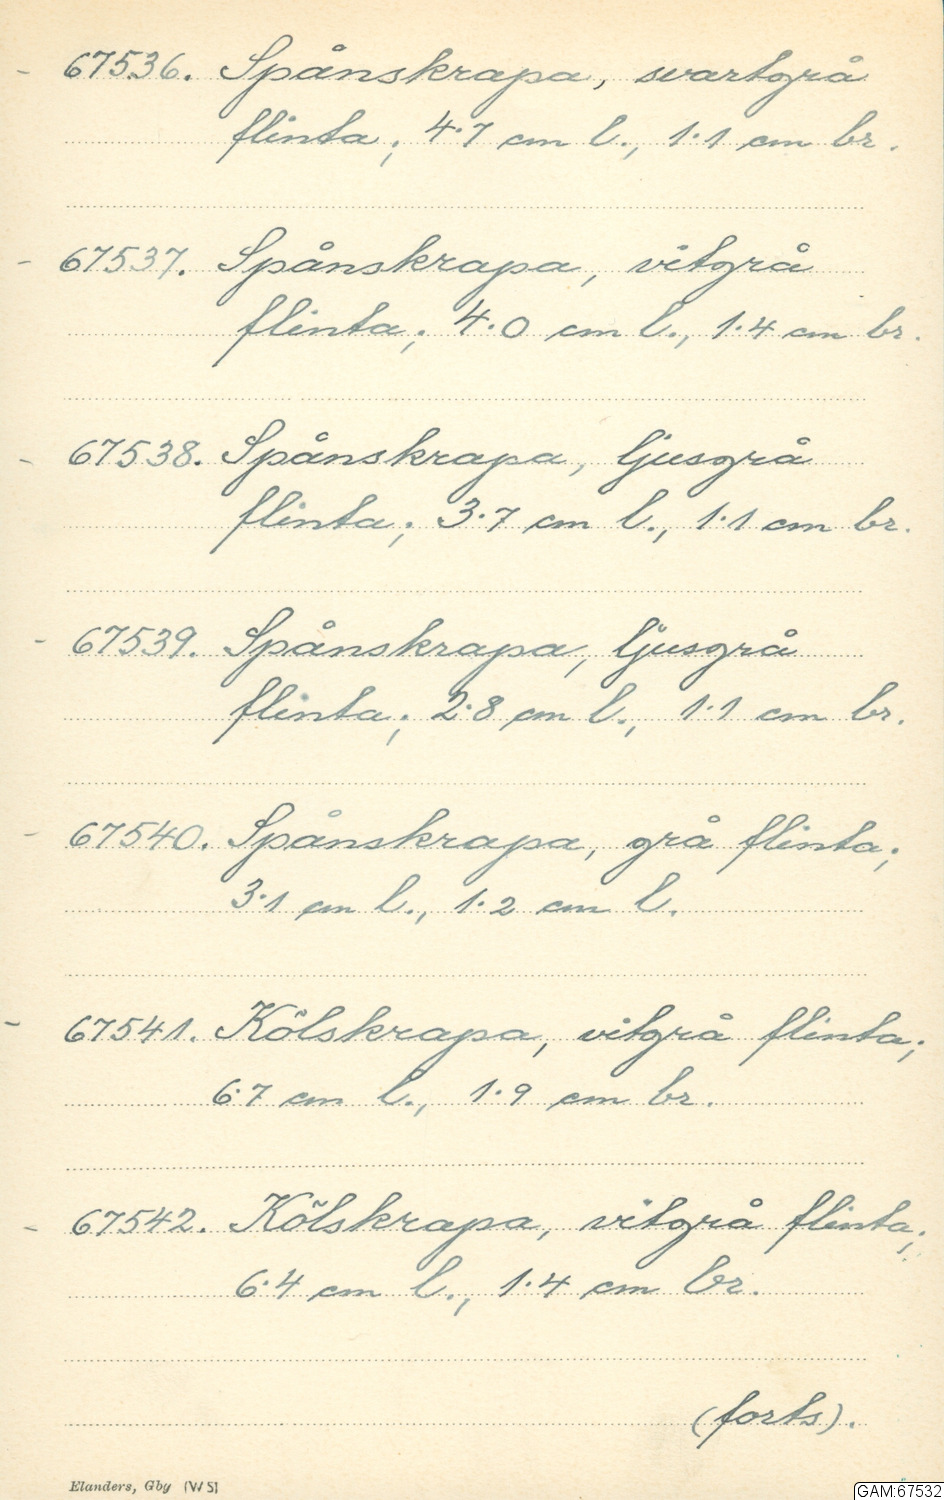 - 67536. Spånskrapa, svartgrå
flinta; 4·7 cm l., 1·1 cm br.
- 67537. Spånskrapa, vitgrå
flinta; 4·0 cm l., 1·4 cm br.
- 67538. Spånskrapa, ljusgrå
flinta; 3·7 cm l., 1·1 cm br.
- 67539. Spånskrapa, ljusgrå
flinta; 2·8 cm l., 1·1 cm br.
- 67540. Spånskrapa, grå flinta;
3·1 cm l., 1·2 cm l.
- 67541. Kölskrapa, vitgrå flinta;
6·7 cm l., 1·9 cm br.
- 67542. Kölskrapa, vitgrå flinta;
6·4 cm l., 1·4 cm br.
(forts).
Elanders, Gby (W5)
GAM:67532